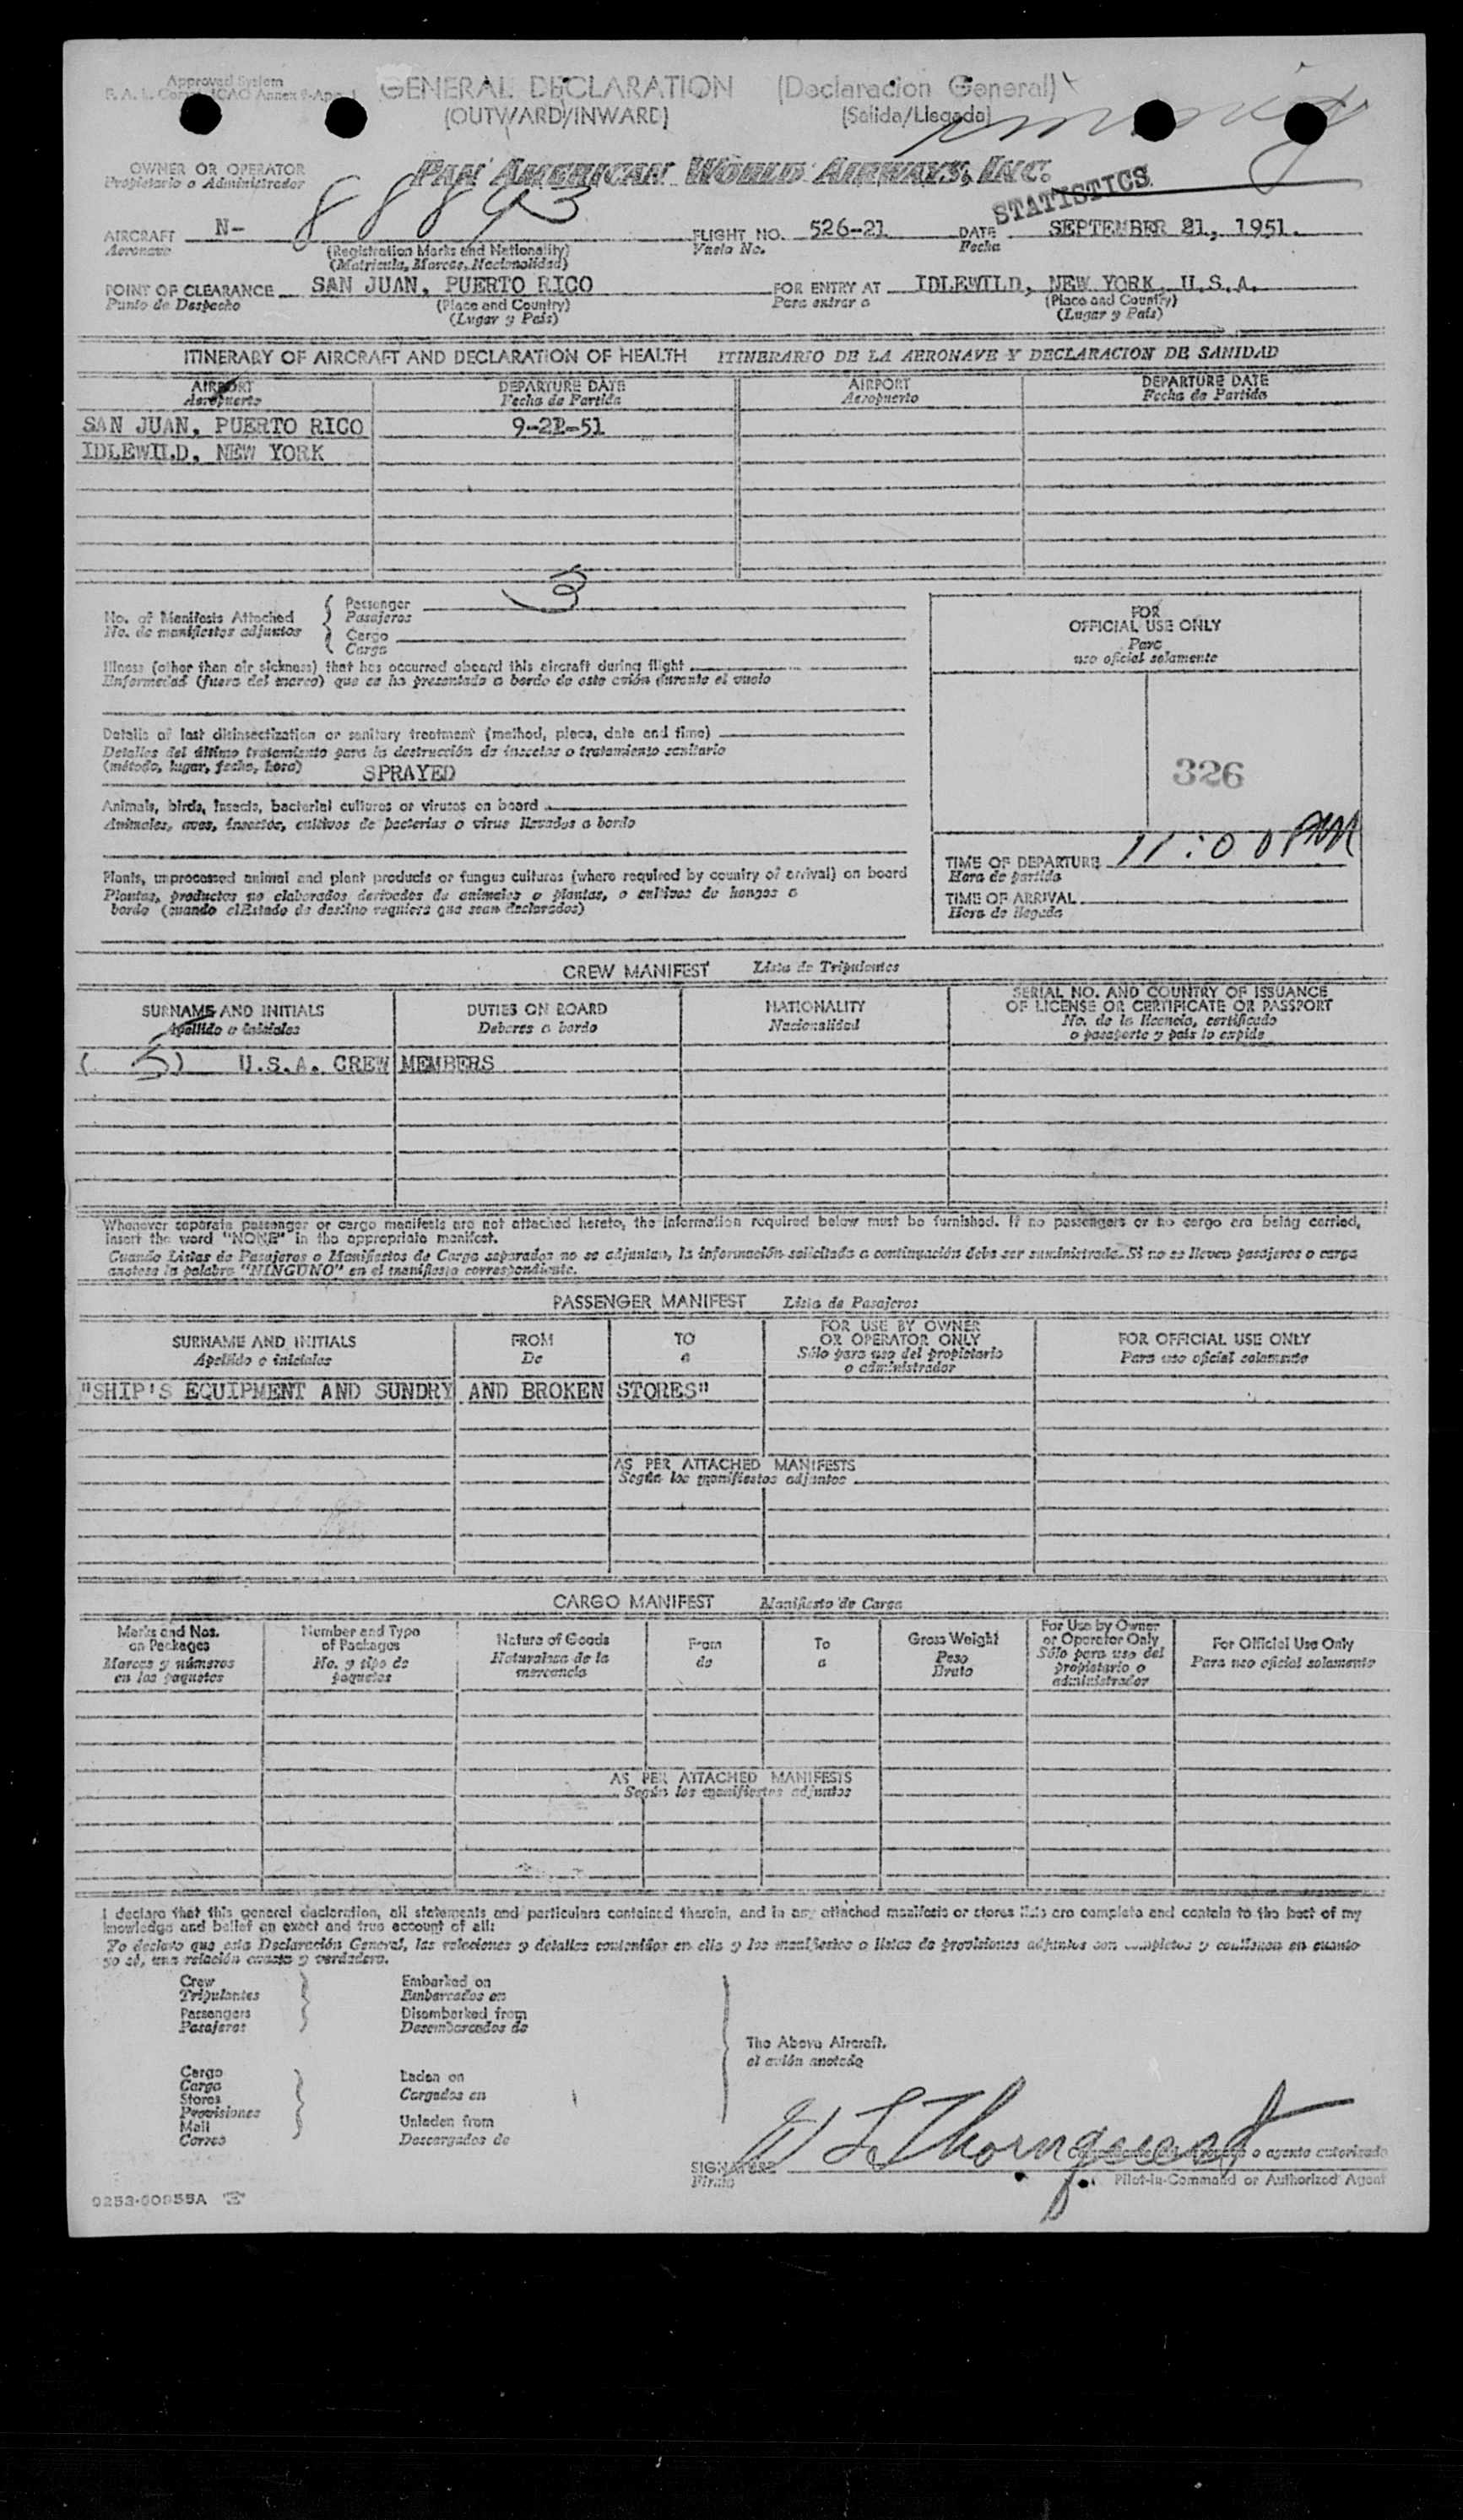 Approved System
F. A. L. Comm. ICAO Annex 9-App. 1
GENERAL DECLARATION (Declaracion General)
(OUTWARD/INWARD) (Salida/Llegada)
OWNER OR OPERATOR
Propietario o Administrador
PAN AMERICAN WORLD AIRWAYS, INC.
STATISTICS
AIRCRAFT N- 88893 FLIGHT NO. 526-21 DATE SEPTEMBER 21, 1951.
Aeronave (Registration Marks and Nationality) Vuelo No. Fecha
(Matricula, Marcas, Nacionalidad)
POINT OF CLEARANCE SAN JUAN, PUERTO RICO FOR ENTRY AT IDLEWILD, NEW YORK, U.S.A.
Punto de Despacho (Place and Country) Para entrar a (Place and Country)
(Lugar y Pais) (Lugar y Pais)
ITINERARY OF AIRCRAFT AND DECLARATION OF HEALTH ITINERARIO DE LA AERONAVE Y DECLARACION DE SANIDAD
AIRPORT DEPARTURE DATE AIRPORT DEPARTURE DATE
Aeropuerto Fecha de Partida Aeropuerto Fecha de Partida
SAN JUAN, PUERTO RICO 9-21-51
IDLEWILD, NEW YORK
No. of Manifests Attached Passenger 3
No. de manifiestos adjuntos Pasajeros
Cargo
Carga
FOR
OFFICIAL USE ONLY
Para
uso oficial solamente
Illness (other than air sickness) that has occurred aboard this aircraft during flight
Enfermedad (fuera del mareo) que se ha presentado a bordo de este avión durante el vuelo
Details of last disinsectization or sanitary treatment (method, place, date and time)
Detalles del último tratamiento para la destrucción de insectos o tratamiento sanitario
(método, lugar, fecha, hora) SPRAYED
326
Animals, birds, insects, bacterial cultures or viruses on board
Animales, aves, insectos, cultivos de bacterias o virus llevados a bordo
TIME OF DEPARTURE 11:00 PM
Hora de partida
Plants, unprocessed animal and plant products or fungus cultures (where required by country of arrival) on board
Plantas, productos no elaborados derivados de animales o plantas, o cultivos de hongos a
bordo (cuando el Estado de destino requiera que sean declarados)
TIME OF ARRIVAL
Hora de llegada
CREW MANIFEST Lista de Tripulantes
SURNAME AND INITIALS DUTIES ON BOARD NATIONALITY SERIAL NO. AND COUNTRY OF ISSUANCE
OF LICENSE OR CERTIFICATE OR PASSPORT
Apellido e iniciales Deberes a bordo Nacionalidad No. de la licencia, certificado
o pasaporte y pais lo expide
( 5) U.S.A. CREW MEMBERS
Whenever separate passenger or cargo manifests are not attached hereto, the information required below must be furnished. If no passengers or no cargo are being carried,
insert the word "NONE" in the appropriate manifest.
Cuando Listas de Pasajeros o Manifiestos de Carga separados no se adjuntan, la información solicitada a continuación debe ser suministrada. Si no se llevan pasajeros o carga
anotese la palabra "NINGUNO" en el manifiesto correspondiente.
PASSENGER MANIFEST Lista de Pasajeros
SURNAME AND INITIALS FROM TO FOR USE BY OWNER OR OPERATOR ONLY FOR OFFICIAL USE ONLY
Apellido e iniciales De a Sólo para uso del propietario o administrador Para uso oficial solamente
"SHIP'S EQUIPMENT AND SUNDRY AND BROKEN STORES"
AS PER ATTACHED MANIFESTS
Según los manifiestos adjuntos
CARGO MANIFEST Manifiesto de Carga
Marks and Nos. on Packages Number and Type of Packages Nature of Goods From To Gross Weight For Use by Owner or Operator Only For Official Use Only
Marcas y números en los paquetes No. y tipo de paquetes Naturalesa de la mercancia de a Peso Bruto Sólo para uso del propietario o administrador Para uso oficial solamente
AS PER ATTACHED MANIFESTS
Según los manifiestos adjuntos
I declare that this general declaration, all statements and particulars contained therein, and in any attached manifests or stores lists are complete and contain to the best of my
knowledge and belief an exact and true account of all:
Yo declaro que esta Declaración General, las relaciones y detalles contenidos en ella y los manifiestos o listas de provisiones adjuntos son completos y contienen en cuanto
yo sé, una relación exacta y verdadera.
Crew Embarked on
Tripulantes Embarcados en
Passengers Disembarked from
Pasajeros Desembarcados de
The Above Aircraft.
el avión anotado
Cargo Laden on
Carga Cargados en
Stores
Provisiones
Mail Unladen from
Correo Descargados de
W L Thornquest
o agente autorizado
SIGNATURE
Firma Pilot-in-Command or Authorized Agent
9253-60955A